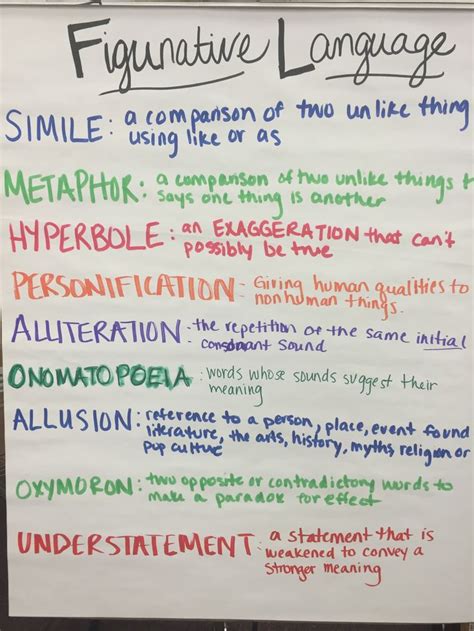 Figurative Language
SIMILE: a comparison of two unlike thing
using like or as
METAPHOR: a comparison of two unlike things t
says one thing is another
HYPERBOLE: an EXAGGERATION that can't
possibly be true
PERSONIFICATION - Giving human qualities to
nonhuman things.
ALLITERATION - the repetition of the same initial
consonant sound
ONOMATOPOEIA: words whose sounds suggest their
meaning
ALLUSION: reference to a person, place, event found
literature, the arts, history, myths, religion or
pop culture
OXYMORON: two opposite or contradictory words to
make a paradox for effect
UNDERSTATEMENT: a statement that is
weakened to convey a
stronger meaning